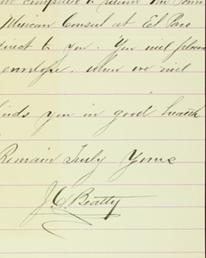 Mexican Consul at El Paso
direct to you. You will please
envelope, when we will
finds you in good health
Remain Truly Yours
J.C. Beatty